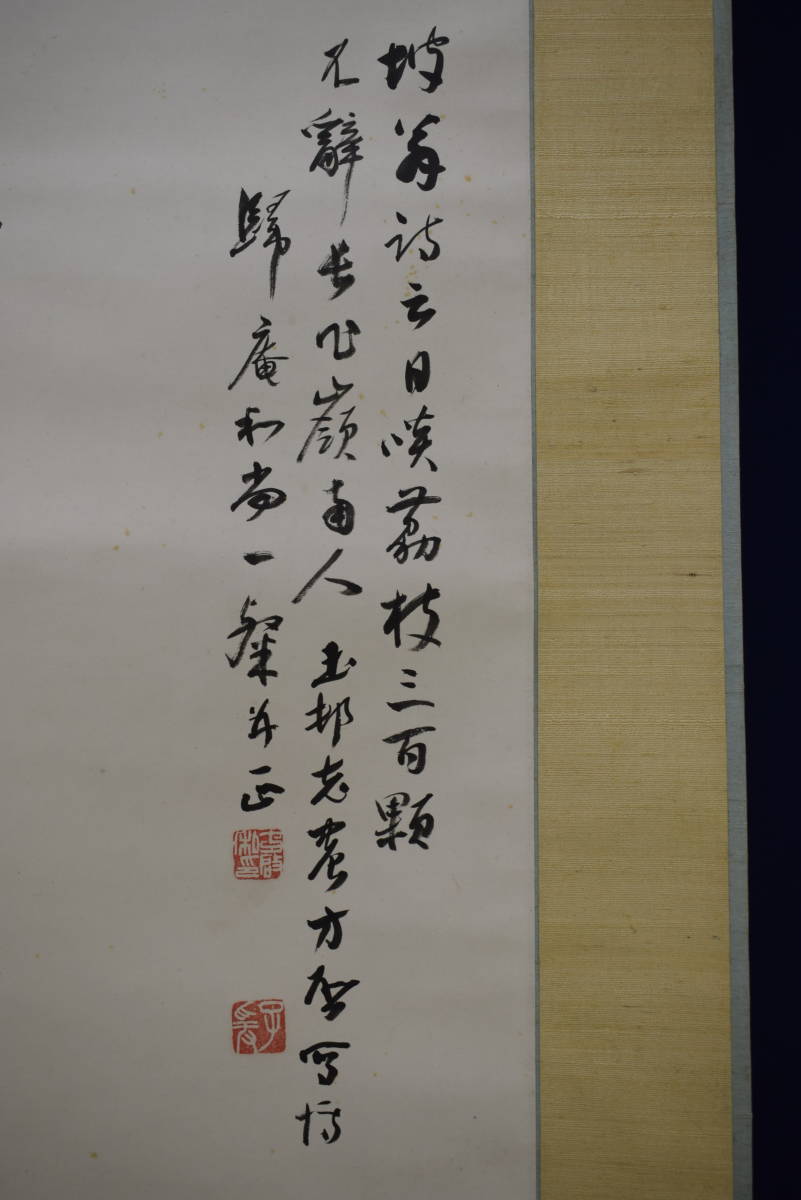 坡翁詩云日啖荔枝三百顆
不辭長作嶺南人 玉邨老農方啓寫博
歸庵和尚一粲并正
子長